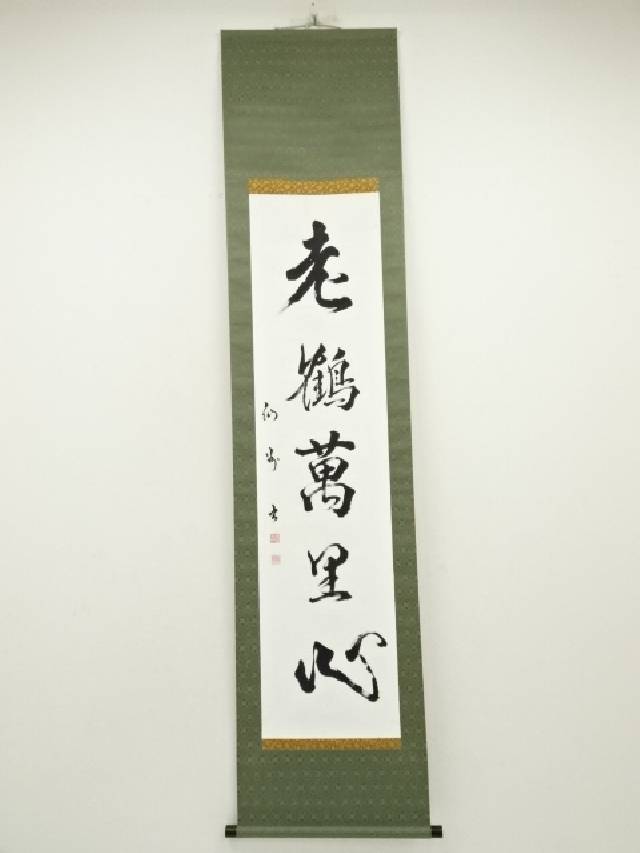 老鶴萬里心